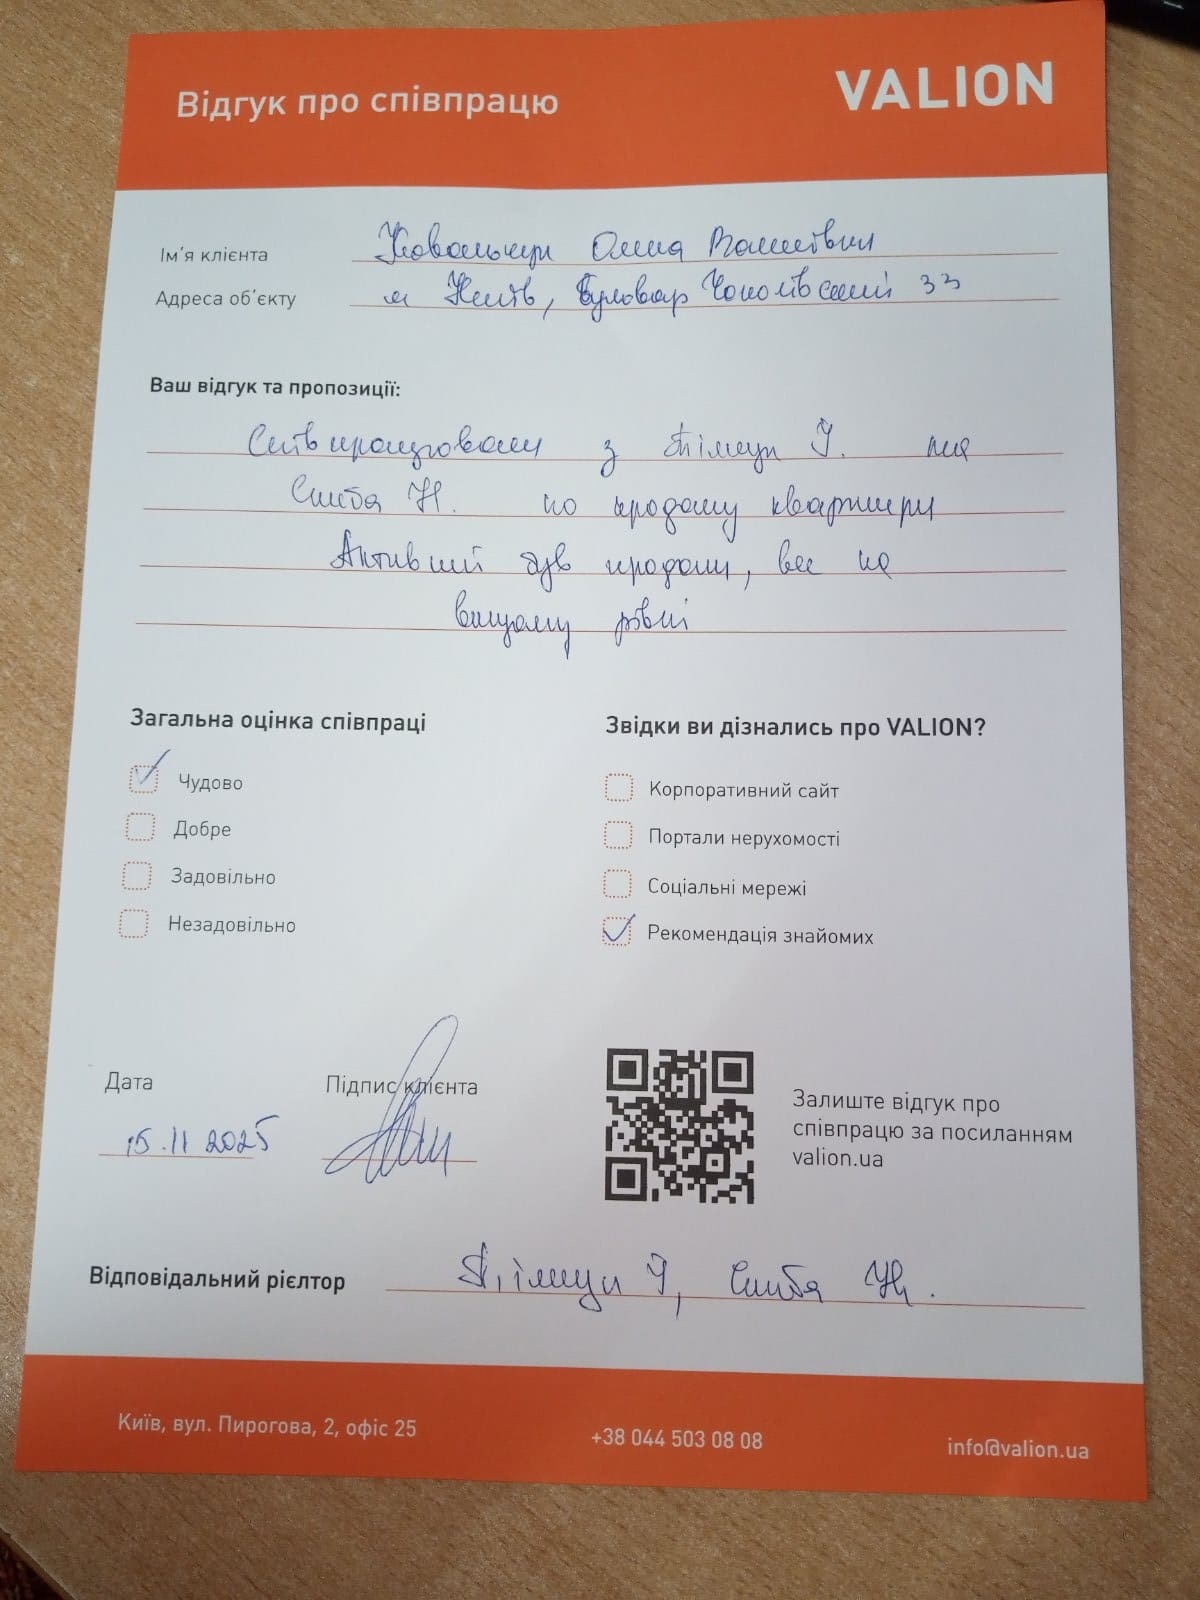 Відгук про співпрацю
VALION
Ім'я клієнта Ковальчук
Адреса об'єкту м Київ, бульвар Чоколівський 33
Ваш відгук та пропозиції:
Співпрацювали з І. та
Скиба Н. по продажу квартири
Активний був продаж, все на
вищому рівні
Загальна оцінка співпраці
Чудово
Добре
Задовільно
Незадовільно
Звідки ви дізнались про VALION?
Корпоративний сайт
Портали нерухомості
Соціальні мережі
Рекомендація знайомих
Дата
15.11 2025
Підпис клієнта
Залиште відгук про
співпрацю за посиланням
valion.ua
Відповідальний рієлтор І, Скиба Н.
Київ, вул. Пирогова, 2, офіс 25
+38 044 503 08 08
info@valion.ua